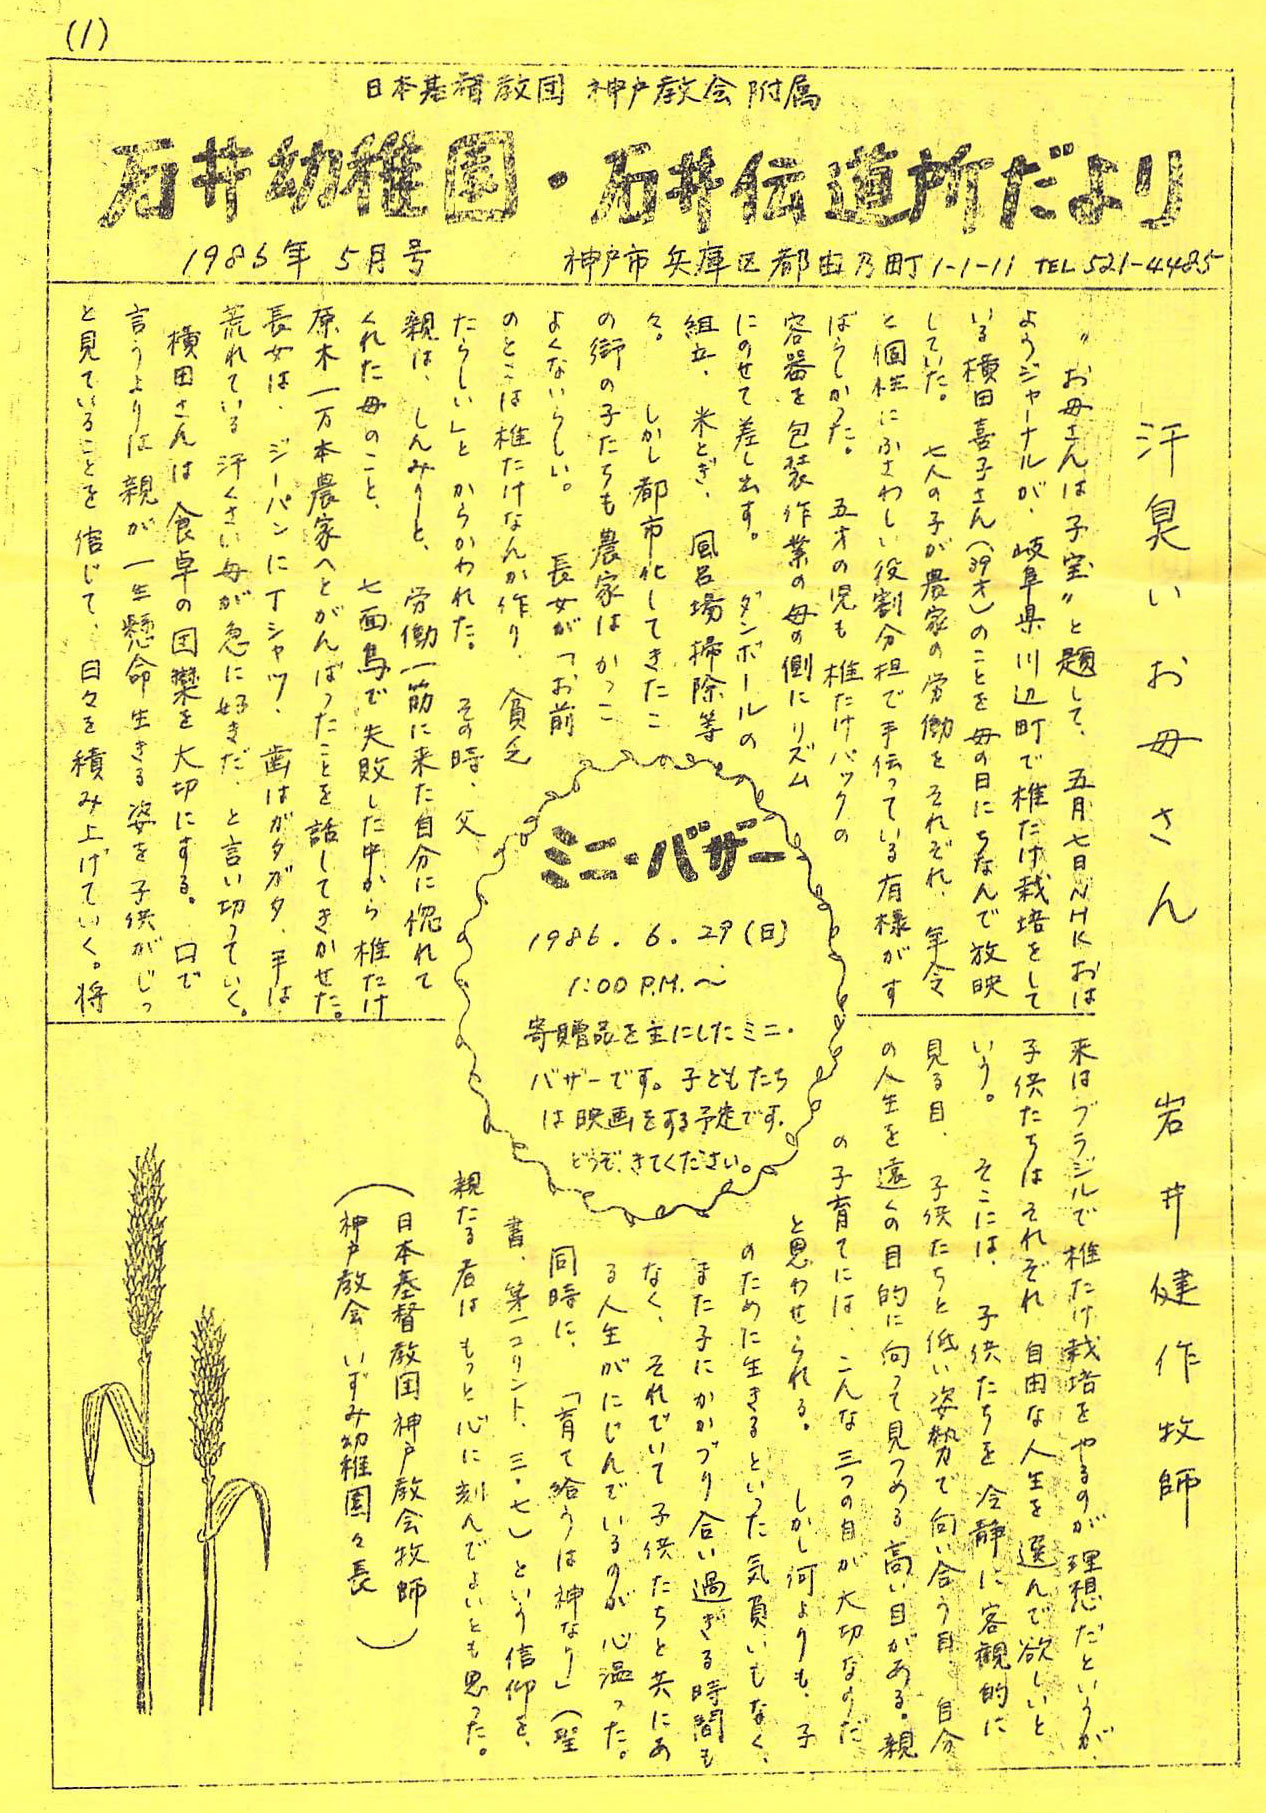 (1)
日本基督教団 神戸教会附属
石井幼稚園・石井伝道所だより
1986年 5月号 神戸市兵庫区都由乃町1-1-11 TEL 521-4485
汗臭いお母さん
岩井健作牧師
〃お母さんは子宝〃と題して、五月七日NHKおは
ようジャーナルが、岐阜県川辺町で椎たけ栽培をして
いる横田喜子さん(39才)のことを母の日にちなんで放映
していた。七人の子が農家の労働をそれぞれ、年令
と個性にふさわしい役割分担で手伝っている有様がす
ばらしかった。五才の児も椎たけパックの
容器を包装作業の母の側にリズム
にのせて差し出す。ダンボールの
組立、米とぎ、風呂場掃除等
々。しかし都市化してきたこ
の街の子たちも農家はかっこ
よくないらしい。長女が「お前
のとこは椎たけなんか作り、貧乏
たらしい」とからかわれた。その時、父
親は、しんみりと、労働一筋に来た自分に惚れて
くれた母のこと、七面鳥で失敗した中から椎たけ
原木一万本農家へとがんばったことを話してきかせた。
長女は、ジーパンにTシャツ、歯はガタガタ、手は
荒れている汗くさい母が急に好きだ、と言い切っていく。
横田さんは食卓の団欒を大切にする。口で
言うよりは親が一生懸命生きる姿を子供がじっ
と見ていることを信じて、日々を積み上げていく。将
ミニ・バザー
1986. 6. 29(日)
1:00 P.M.〜
寄贈品を主にしたミニ・
バザーです。子どもたち
は映画をする予定です。
どうぞ、きてください。
来はブラジルで椎たけ栽培をやるのが理想だというが、
子供たちはそれぞれ自由な人生を選んで欲しいと
いう。そこには、子供たちを冷静に客観的に
見る目、子供たちと低い姿勢で向い合う目、自分
の人生を遠くの目的に向って見つめる高い目がある。親
の子育てには、こんな三つの目が大切なのだ
と思わせられる。しかし何よりも、子
のために生きるといった気負いもなく、
また子にかかづり合い過ぎる時間も
なく、それでいて子供たちと共にあ
る人生がにじんでいるのが心温った。
同時に、「育て給うは神なり」(聖
書、第一コリント、三・七)という信仰を、
親たる者はもっと心に刻んでよいとも思った。
(日本基督教団神戸教会牧師
神戸教会いずみ幼稚園々長)